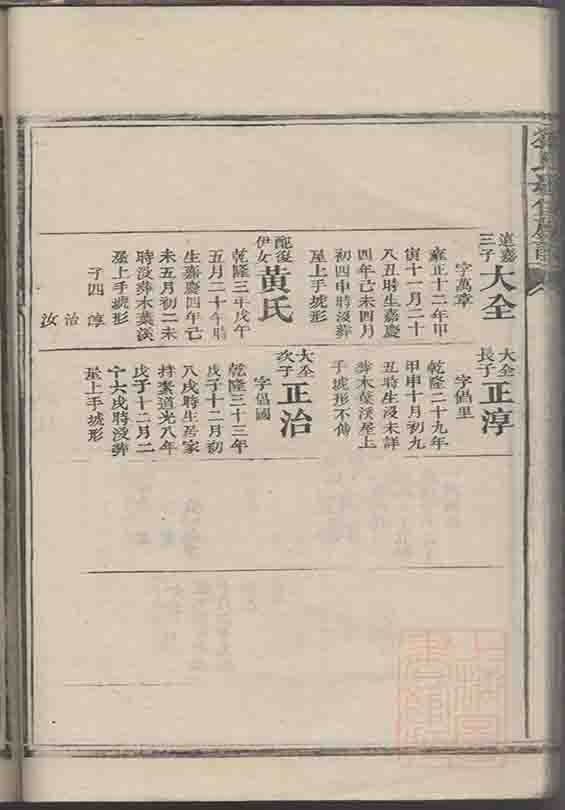 遠嘉三子
大全
字萬章
雍正十二年甲
寅十一月二十
八丑時生嘉慶
四年己未四月
初四申時沒葬
屋上手琥形
配復伊女
黄氏
乾隆三年戊午
五月二十午時
生嘉慶四年己
未五月初二未
時沒葬木葉溪
屋上手琥形
子四 淳
治
汝
大全長子
正淳
字倡里
乾隆二十九年
甲申十月初九
丑時生沒未詳
葬木葉溪屋上
手琥形不傳
大全次子
正治
字倡國
乾隆三十三年
戊子十二月初
八戌時生居家
持素道光八年
戊子十二月二
十六戌時沒葬
屋上手琥形